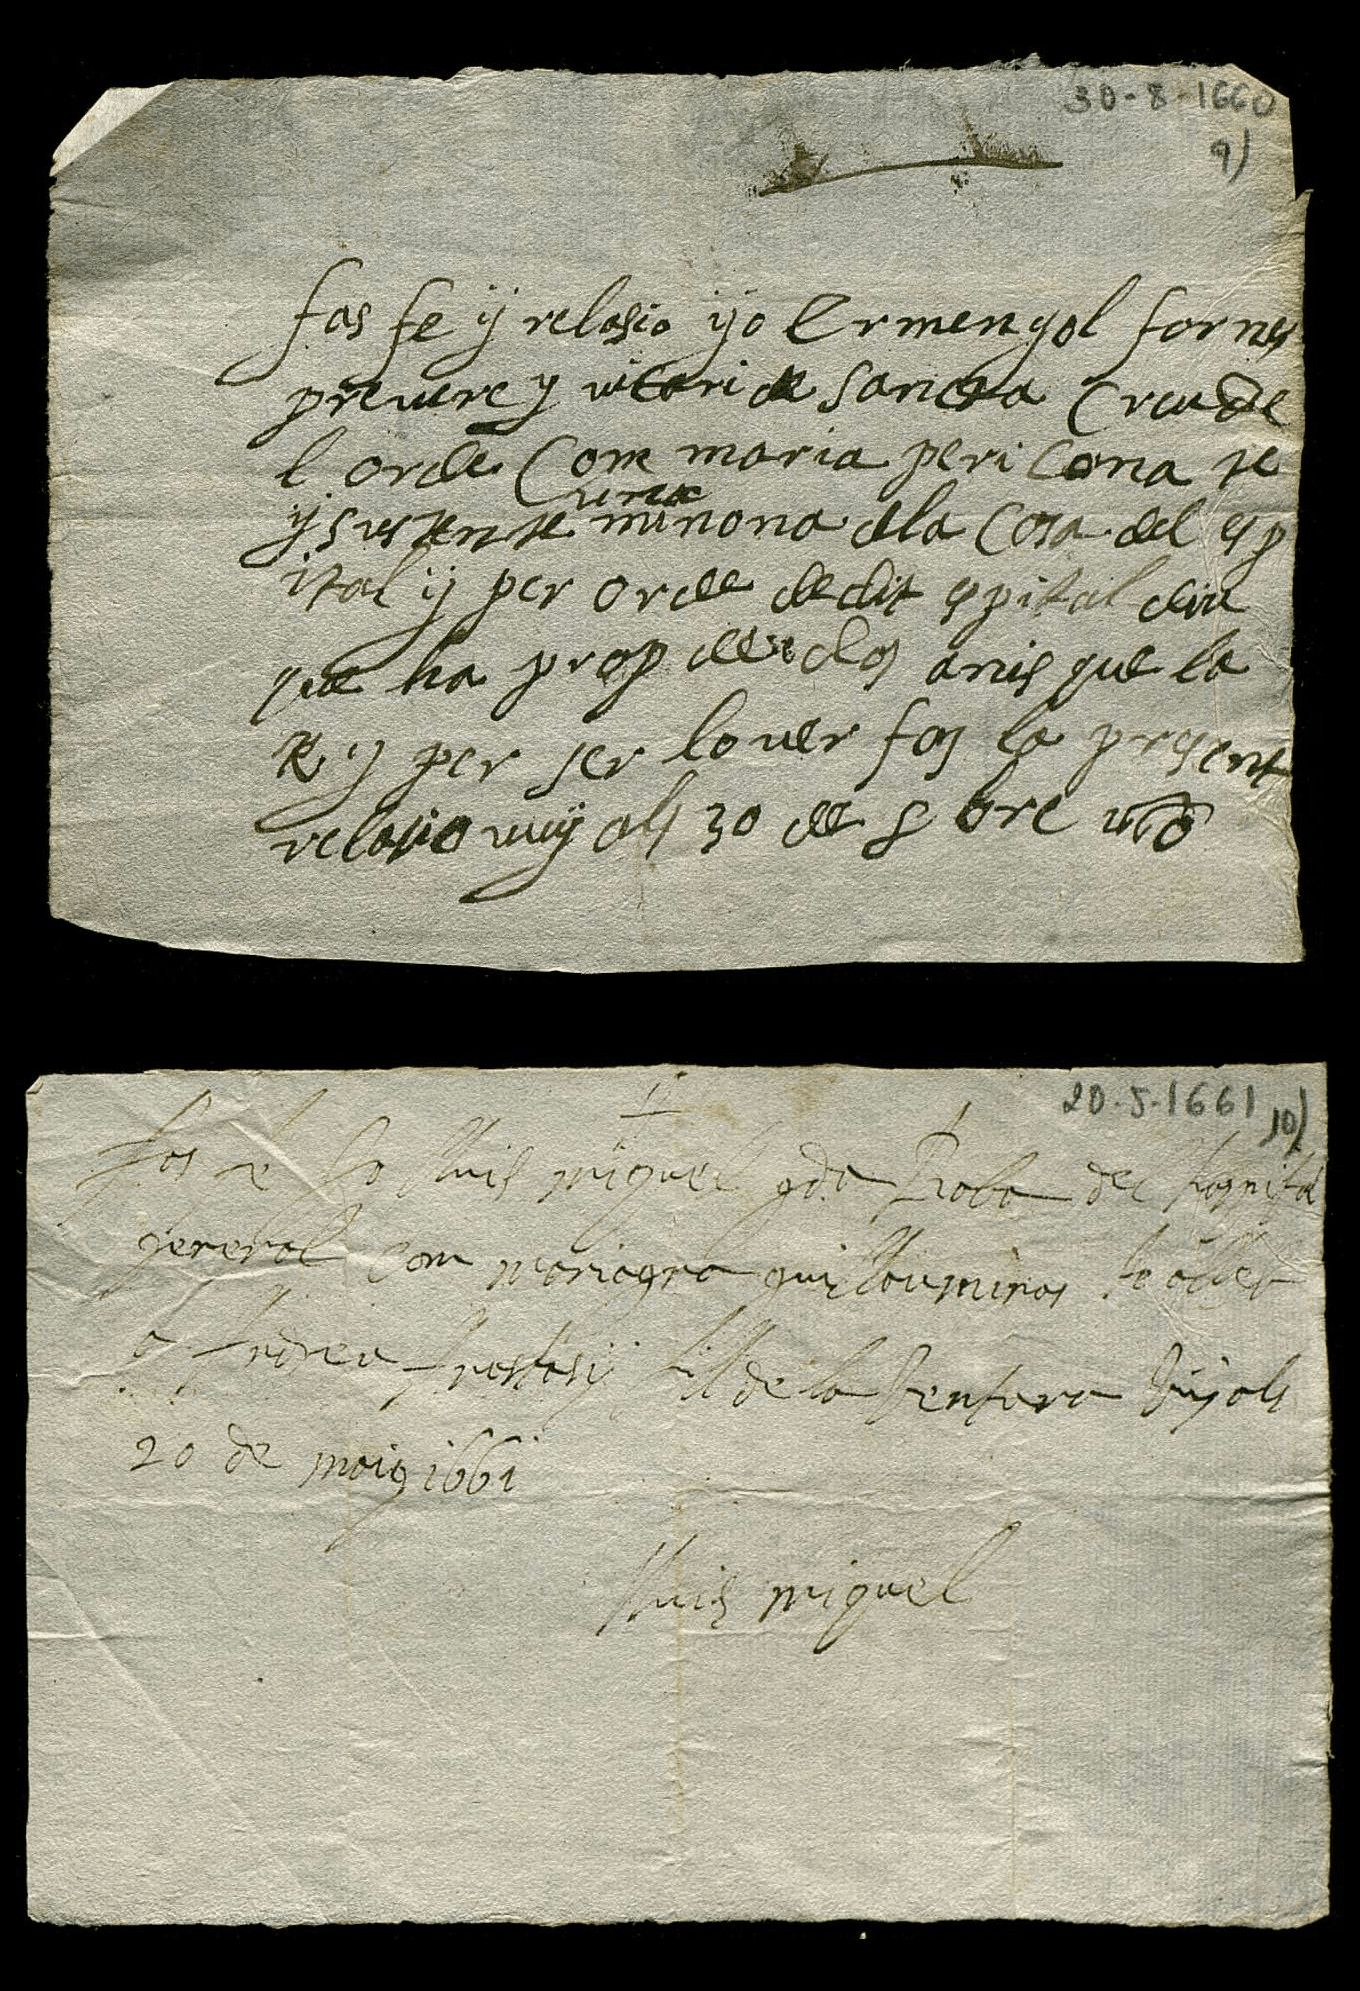 30-8-1660
9)
fas fe y relasio yo Ermengol fornes
prevere y vicari de Sancta Creu de
l orde Com maria pericona te
y sustente una minona de la Casa del esp
ital y per orde de dit espital diu
que ha prop de dos anis que la
te y per ser lo ver fas la present
relasio vuy als 30 de 8bre
20-5-1661
10)
fas fe Jo lluis miquel del hospital
general Com mariagna
a fill de la vuy als
20 de maig 1661
lluis miquel